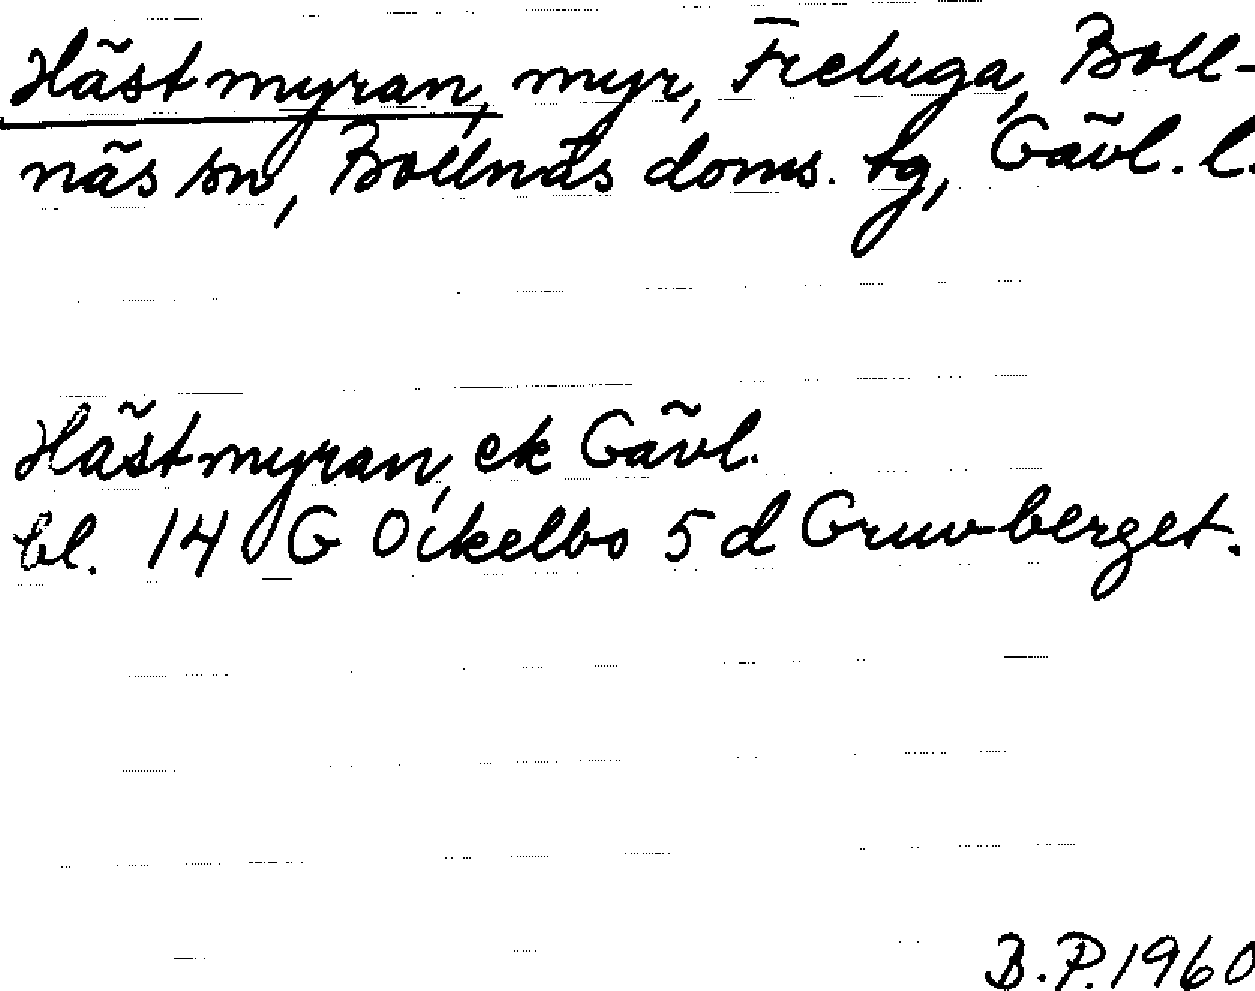 Hästmyran, myr, Freluga, Boll-
näs sn, Bollnäs doms. tg, Gävl. l.
Hästmyran, ek Gävl.
bl. 14 G Ockelbo 5 d Gruvberget.
B.P. 1960